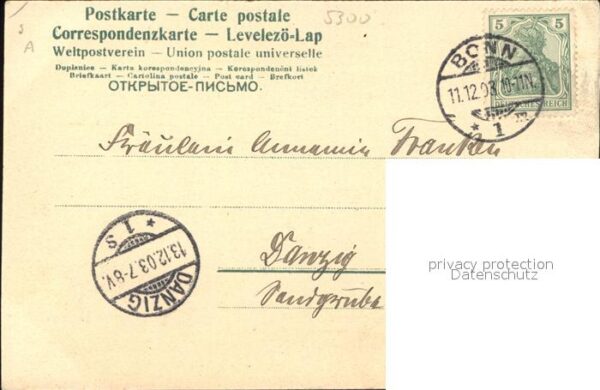 Postkarte — Carte postale
Correspondenzkarte — Levelező-Lap
Weltpostverein — Union postale universelle
Dopisnice — Karta korespondencyjna — Korespondenční lístek
Briefkaart — Cartolina postale — Post card — Brefkort
ОТКРЫТОЕ-ПИСЬМО.
5300
S
A
5 5
DEUTSCHES REICH
BONN
11.12.03.10-11N.
* 1 m
Fräulein Annamin Franken
DANZIG
13.12.03.7-8V.
* 1 s
Danzig
Sandgrube
privacy protection
Datenschutz